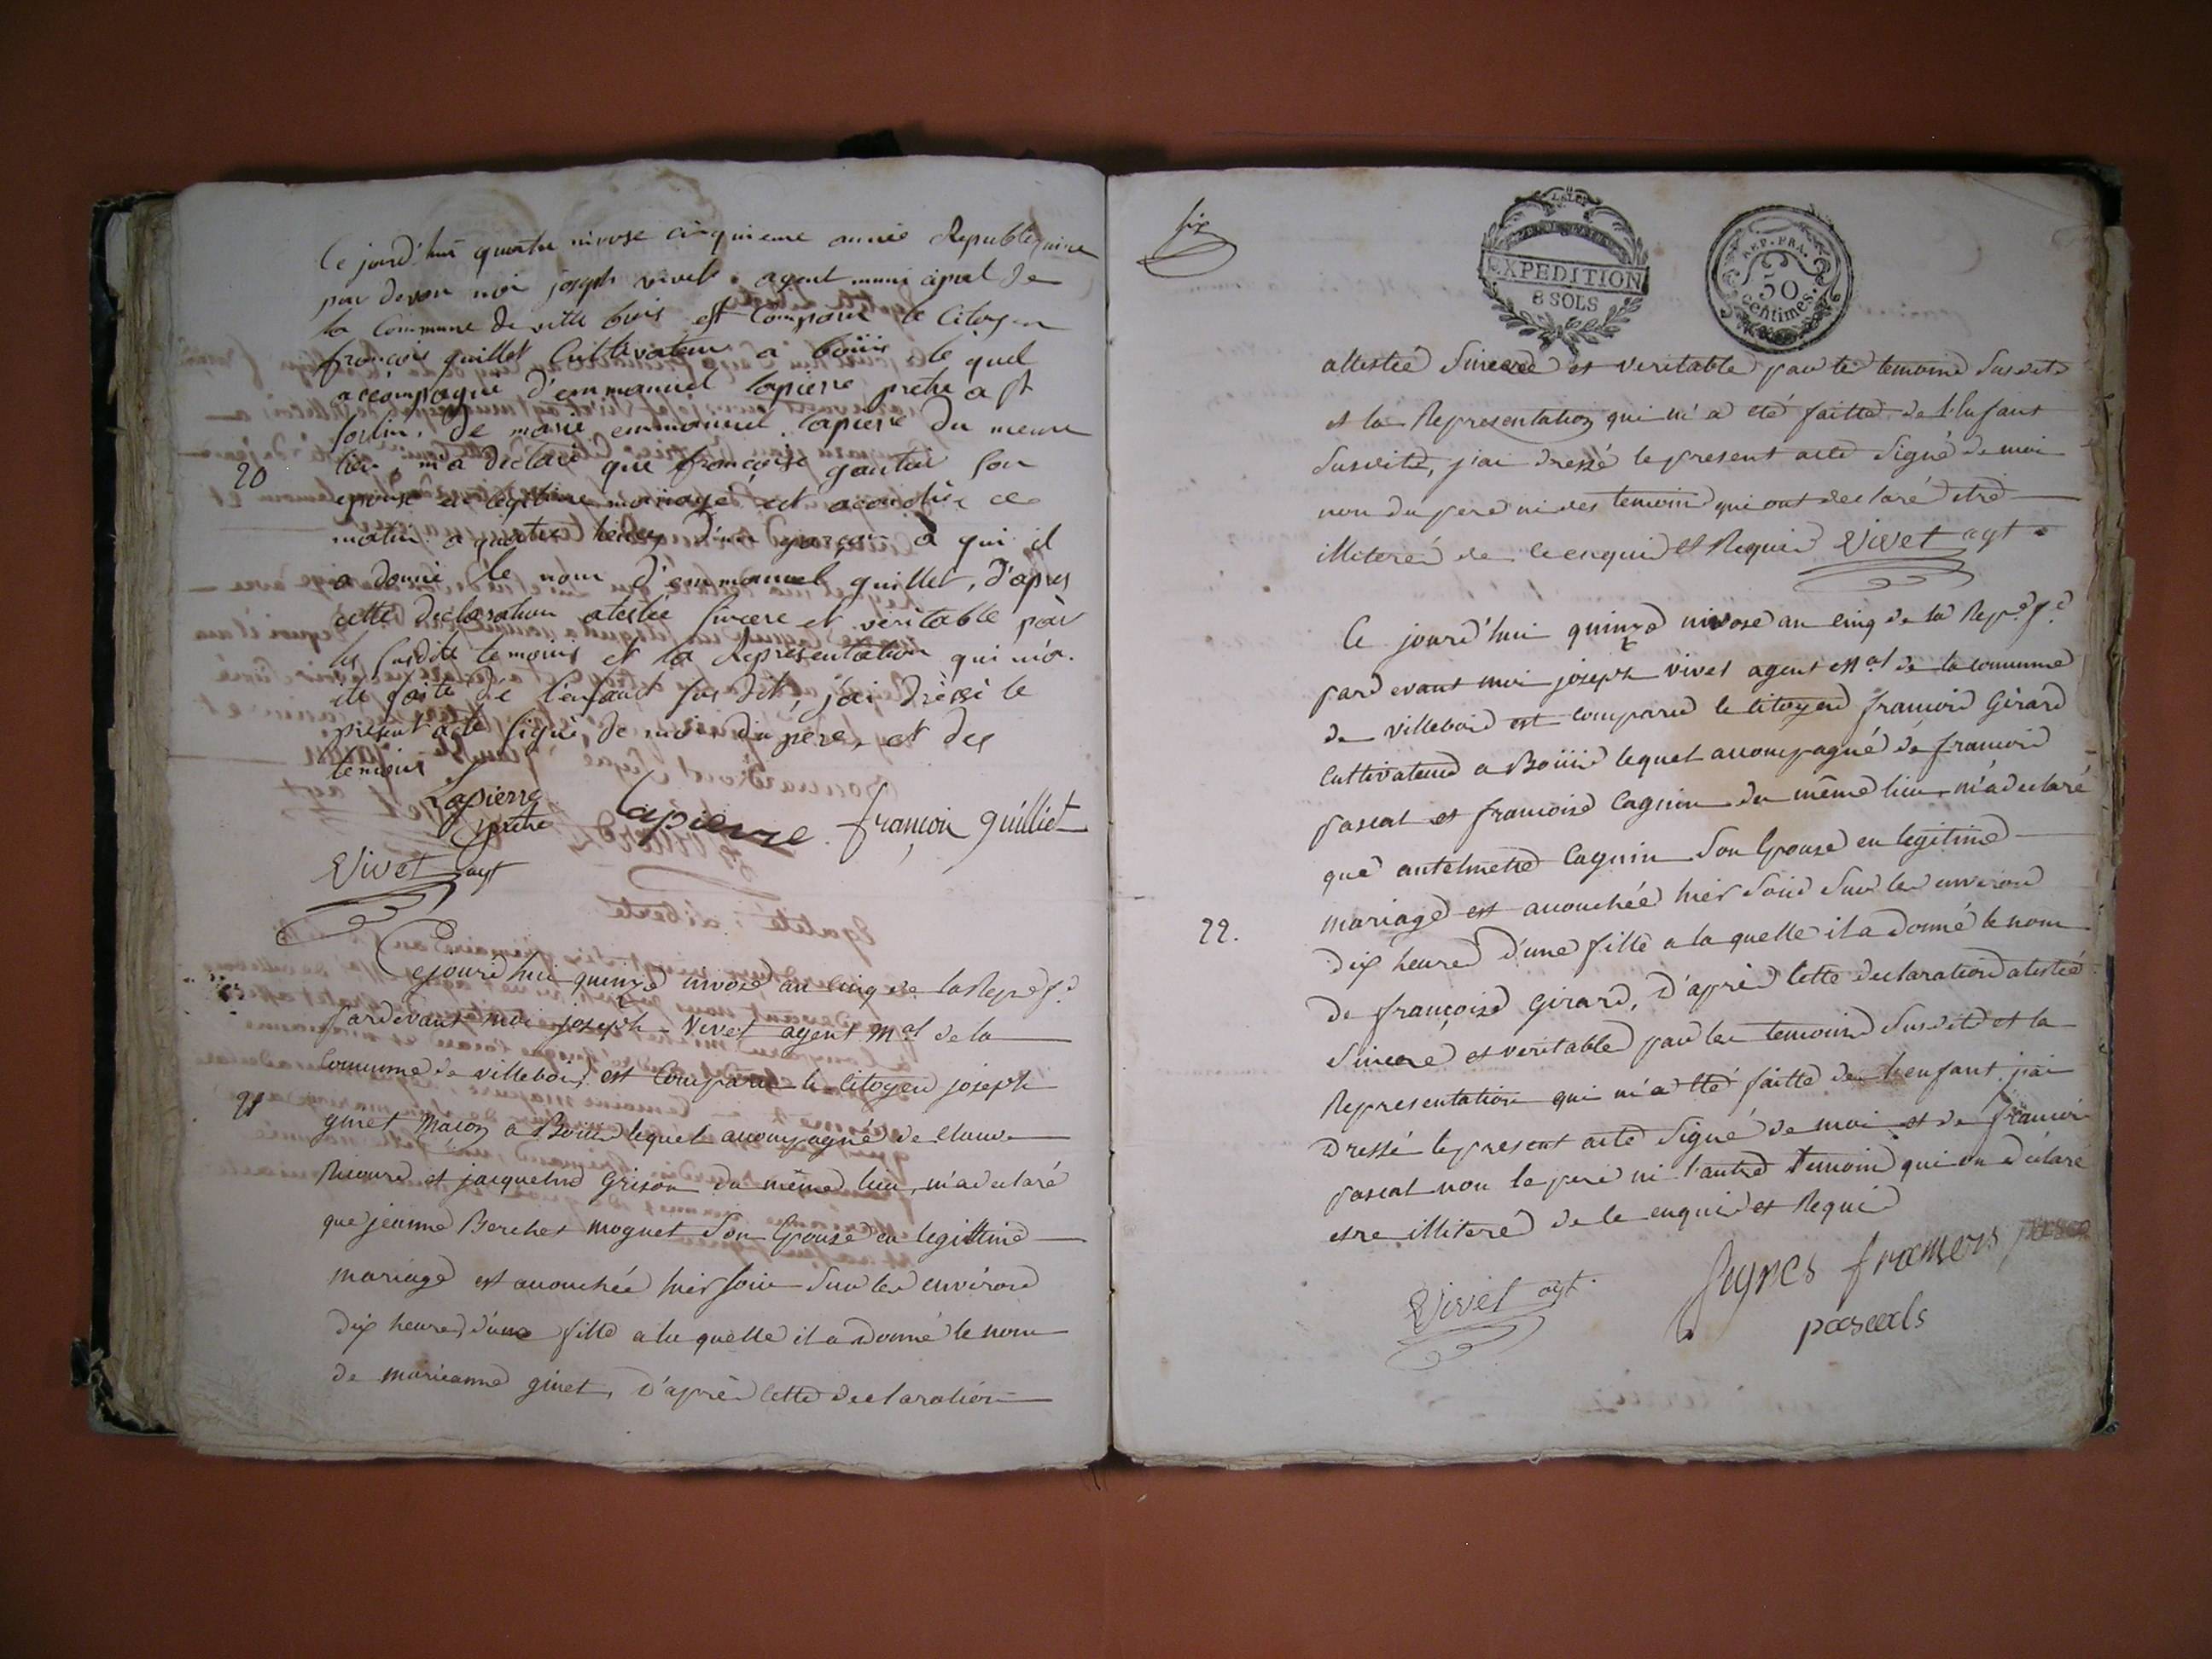 Ce jourd'hui quatre nivose cinquieme année Republiquaine
par devan moi joseph vivet agent municipal de
la Commune de ville bois est Comparu le Citoyen
françois guillet Cultivateur a boüis le quel
accompagné d'emmanuel lapierre pretre a st
sorlin, de marie emmanuel lapierre du meme
20
lieu, m'a declaré que françoise gautier son
epouse en legitime mariage est acouchée ce
matin a quatre heures d'un garçon à qui il
a donné le nom d'emmanuel guillet, d'apres
cette declaration atestée sincere et veritable par
les susdits temoins et la Representation qui m'a
été faite de l'enfant sus dit, j'ai dressé le
present acte signé de moi du pere, et des
temoins
Lapierre
pretre
lapierre
françoi guilliet
Vivet agt
Cejourd'hui quinze nivose an cinq de la Rep.e f.e
pardevant moi joseph Vivet agent m.al de la
Commune de villebois est Comparu le citoyen joseph
21
ginet Maçon a Boüis lequel accompagné de Claude
et jacqueline Grison du même lieu, m'a declaré
que jeanne Berchet moguet son Epouse en legittime
mariage est acouchée hier soir sur les environs
dix heures d'une fille a la quelle il a Donné le nom
de marieanne ginet, D'après cette declaration
six
LA LOI
EXPEDITION
8 SOLS
REP. FRA.
50
centimes.
attestée Sincere et veritable par les temoins Susdits
et la Representation qui m'a eté faitte de l'Enfant
Susdite, j'ai dressé le present acte Signé de moi
non du pere ni des temoins qui ont declaré etre
illiteré de ce enquis et Requis Vivet agt
Ce jourd'hui quinze nivose an cinq de la Rep.e f.e
pardevant moi joseph vivet agent m.al de la commune
de villebois est comparu le citoyen francois Girard
Cultivateur a Boüis lequel accompagné de francois
pascal et francoise Cagnin du même lieu m'a declaré
que antelmette Cagnin Son Epouse en legitime
mariage est acouchée hier Soir Sur les environs
22.
dix heures d'une fille a la quelle il a Donné le nom
de françoise Girard, D'après cette declaration atestée
Sincere et veritable par les temoins Susdits et la
Representation qui m'a eté faitte de l'enfant j'ai
Dressé le present acte Signé de moi et de francois
pascal non le pere ni l'autre temoin qui on declaré
etre illiteré de ce enquis et Requis
Vivet agt.
signes framcois
pascals